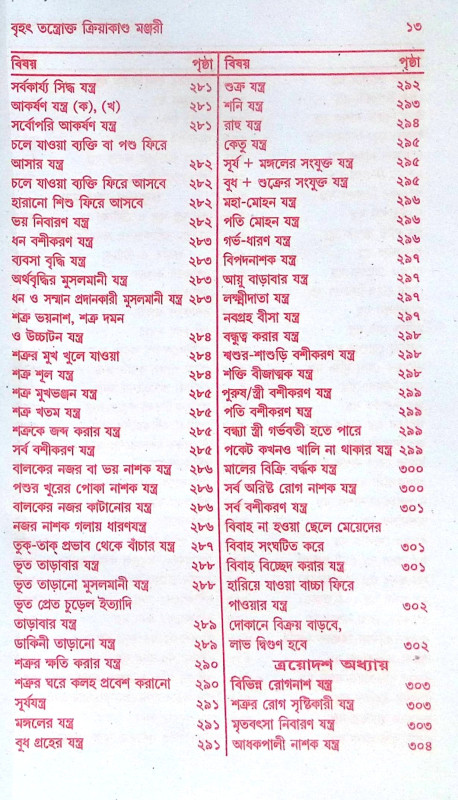 বৃহৎ তন্ত্রোক্ত ক্রিয়াকাণ্ড মঞ্জরী ১৩
বিষয় পৃষ্ঠা
সর্বকার্য্য সিদ্ধ যন্ত্র ২৮১
আকর্ষণ যন্ত্র (ক), (খ) ২৮১
সর্বোপরি আকর্ষণ যন্ত্র ২৮১
চলে যাওয়া ব্যক্তি বা পশু ফিরে
আসার যন্ত্র ২৮২
চলে যাওয়া ব্যক্তি ফিরে আসবে ২৮২
হারানো শিশু ফিরে আসবে ২৮২
ভয় নিবারণ যন্ত্র ২৮২
ধন বশীকরণ যন্ত্র ২৮৩
ব্যবসা বৃদ্ধি যন্ত্র ২৮৩
অর্থবৃদ্ধির মুসলমানী যন্ত্র ২৮৩
ধন ও সম্মান প্রদানকারী মুসলমানী যন্ত্র ২৮৩
শত্রু ভয়নাশ, শত্রু দমন
ও উচ্চাটন যন্ত্র ২৮৪
শত্রুর মুখ খুলে যাওয়া ২৮৪
শত্রু শূল যন্ত্র ২৮৪
শত্রু মুখভঞ্জন যন্ত্র ২৮৫
শত্রু খতম যন্ত্র ২৮৫
শত্রুকে জব্দ করার যন্ত্র ২৮৫
সর্ব বশীকরণ যন্ত্র ২৮৫
বালকের নজর বা ভয় নাশক যন্ত্র ২৮৬
পশুর খুরের পোকা নাশক যন্ত্র ২৮৬
বালকের নজর কাটানোর যন্ত্র ২৮৬
নজর নাশক গলায় ধারণযন্ত্র ২৮৬
তুক্-তাক্ প্রভাব থেকে বাঁচার যন্ত্র ২৮৭
ভূত তাড়াবার যন্ত্র ২৮৮
ভূত তাড়ানো মুসলমানী যন্ত্র ২৮৮
ভূত প্রেত চুড়েল ইত্যাদি
তাড়াবার যন্ত্র ২৮৯
ডাকিনী তাড়ানো যন্ত্র ২৮৯
শত্রুর ক্ষতি করার যন্ত্র ২৯০
শত্রুর ঘরে কলহ প্রবেশ করানো ২৯০
সূর্যযন্ত্র ২৯১
মঙ্গলের যন্ত্র ২৯১
বুধ গ্রহের যন্ত্র ২৯১
বিষয় পৃষ্ঠা
শুক্র যন্ত্র ২৯২
শনি যন্ত্র ২৯৩
রাহু যন্ত্র ২৯৪
কেতু যন্ত্র ২৯৫
সূর্য + মঙ্গলের সংযুক্ত যন্ত্র ২৯৫
বুধ + শুক্রের সংযুক্ত যন্ত্র ২৯৫
মহা-মোহন যন্ত্র ২৯৬
পতি মোহন যন্ত্র ২৯৬
গর্ভ-ধারণ যন্ত্র ২৯৬
বিপদনাশক যন্ত্র ২৯৭
আয়ু বাড়াবার যন্ত্র ২৯৭
লক্ষ্মীদাতা যন্ত্র ২৯৭
নবগ্রহ বীসা যন্ত্র ২৯৭
বন্ধুত্ব করার যন্ত্র ২৯৮
শ্বশুর-শাশুড়ি বশীকরণ যন্ত্র ২৯৮
শক্তি বীজাত্মক যন্ত্র ২৯৮
পুরুষ/স্ত্রী বশীকরণ যন্ত্র ২৯৯
পতি বশীকরণ যন্ত্র ২৯৯
বন্ধ্যা স্ত্রী গর্ভবতী হতে পারে ২৯৯
পকেট কখনও খালি না থাকার যন্ত্র ২৯৯
মালের বিক্রি বর্দ্ধক যন্ত্র ৩০০
সর্ব অরিষ্ট রোগ নাশক যন্ত্র ৩০০
সর্ব বশীকরণ যন্ত্র ৩০১
বিবাহ না হওয়া ছেলে মেয়েদের
বিবাহ সংঘটিত করে ৩০১
বিবাহ বিচ্ছেদ করার যন্ত্র ৩০১
হারিয়ে যাওয়া বাচ্চা ফিরে
পাওয়ার যন্ত্র ৩০২
দোকানে বিক্রয় বাড়বে,
লাভ দ্বিগুণ হবে ৩০২
ত্রয়োদশ অধ্যায়
বিভিন্ন রোগনাশ যন্ত্র ৩০৩
শত্রুর রোগ সৃষ্টিকারী যন্ত্র ৩০৩
মৃতবৎসা নিবারণ যন্ত্র ৩০৩
আধকপালী নাশক যন্ত্র ৩০৪